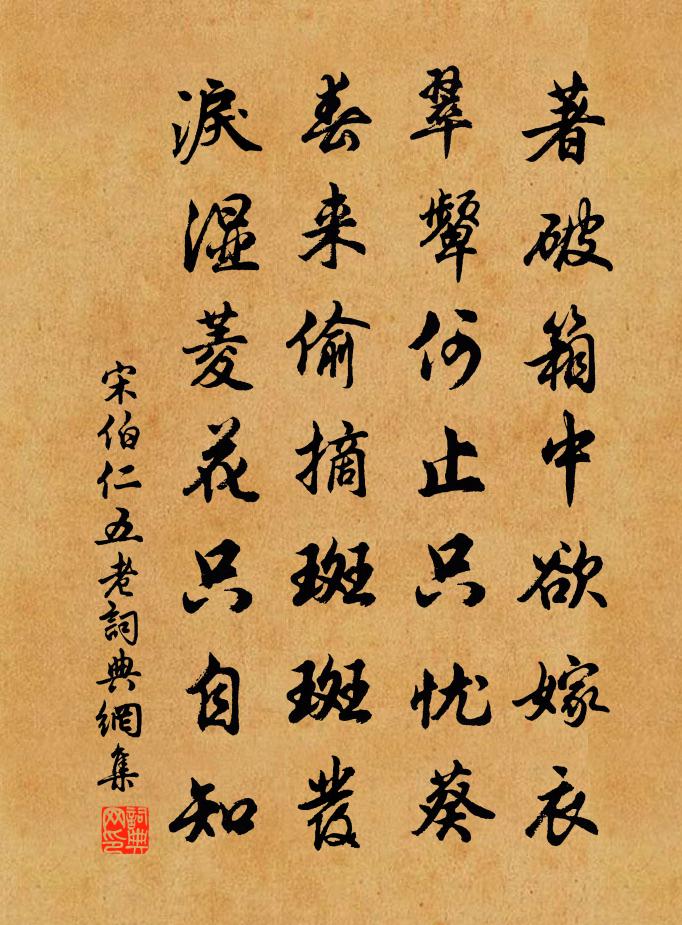 著破箱中欲嫁衣
翠颦何止只忧葵
春来偷摘斑斑发
淚湿菱花只自知
宋伯仁五老詞典網集
詞典网印